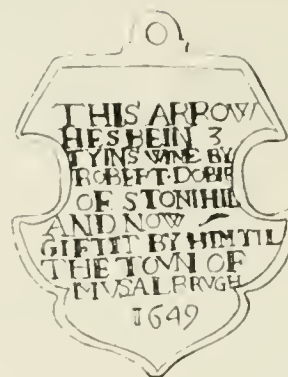 THIS ARROW
HES BEIN 3
TYINS WINE BY
ROBERT·DOBIE
OF STONIHIL
AND NOW
GIFTIT BY HIM TIL
THE TOVN OF
MVSALBRVGH
1649